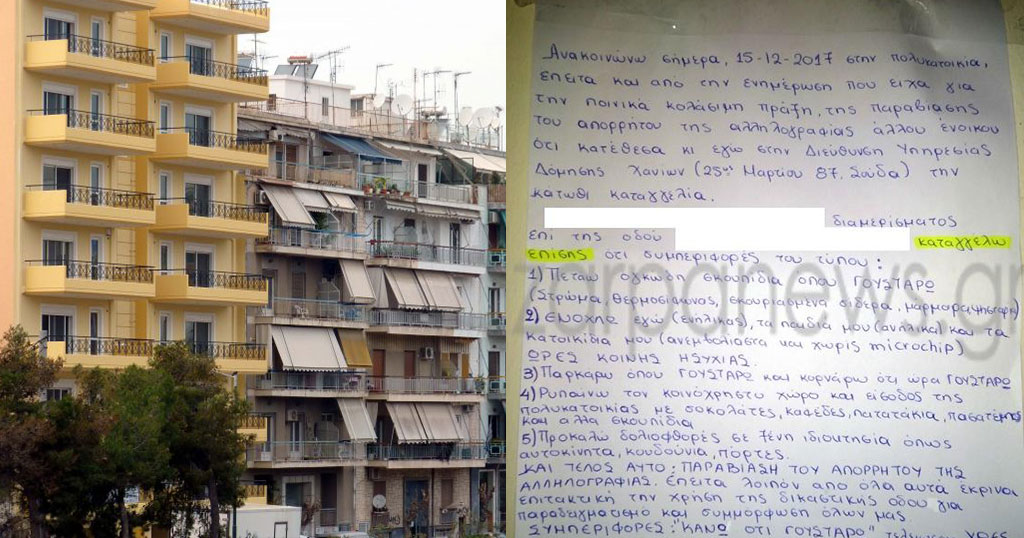 Ανακοινώνω σήμερα, 15-12-2017 στην πολυκατοικία,
έπειτα και από την ενημέρωση που είχα για
την ποινικά κολάσιμη πράξη, της παραβίασης
του απορρήτου της αλληλογραφίας άλλου ένοικου
ότι κατέθεσα κι εγώ στην Διεύθυνση Υπηρεσίας
Δόμησης Χανίων (25ης Μαρτίου 87, Σούδα) την
κάτωθι καταγγελία.
διαμερίσματος
επί της οδού καταγγέλω
επίσης ότι συμπεριφορές του τύπου:
1) Πετάω ογκώδη σκουπίδια όπου ΓΟΥΣΤΑΡΩ
(Στρώμα, θερμοσίφωνας, σκουριασμένα σίδερα, μαρμαροψηστιέρα)
2) ΕΝΟΧΛΩ εγώ (ενήλικας), τα παιδιά μου (ανήλικα) και τα
κατοικίδια μου (ανεμβολίαστα και χωρίς microchip)
ΩΡΕΣ ΚΟΙΝΗΣ ΗΣΥΧΙΑΣ.
3) Παρκάρω όπου ΓΟΥΣΤΑΡΩ και κορνάρω ότι ώρα ΓΟΥΣΤΑΡΩ
4) Ρυπαίνω τον κοινόχρηστο χώρο και είσοδος της
πολυκατοικίας με σοκολάτες, καφέδες, πατατάκια, πασατέμπο
και άλλα σκουπίδια
5) Προκαλώ δολιοφθορές σε ξένη ιδιοκτησία όπως
αυτοκίνητα, κουδούνια, πόρτες.
ΚΑΙ ΤΕΛΟΣ ΑΥΤΟ: ΠΑΡΑΒΙΑΣΗ ΤΟΥ ΑΠΟΡΡΗΤΟΥ ΤΗΣ
ΑΛΛΗΛΟΓΡΑΦΙΑΣ. Έπειτα λοιπόν από όλα αυτά έκρινα
επιτακτική την χρήση της δικαστικής οδού για
παραδειγματισμό και συμμόρφωση όλων μας.
ΣΥΜΠΕΡΙΦΟΡΕΣ: "ΚΑΝΩ ΟΤΙ ΓΟΥΣΤΑΡΩ"
zarpanews.gr